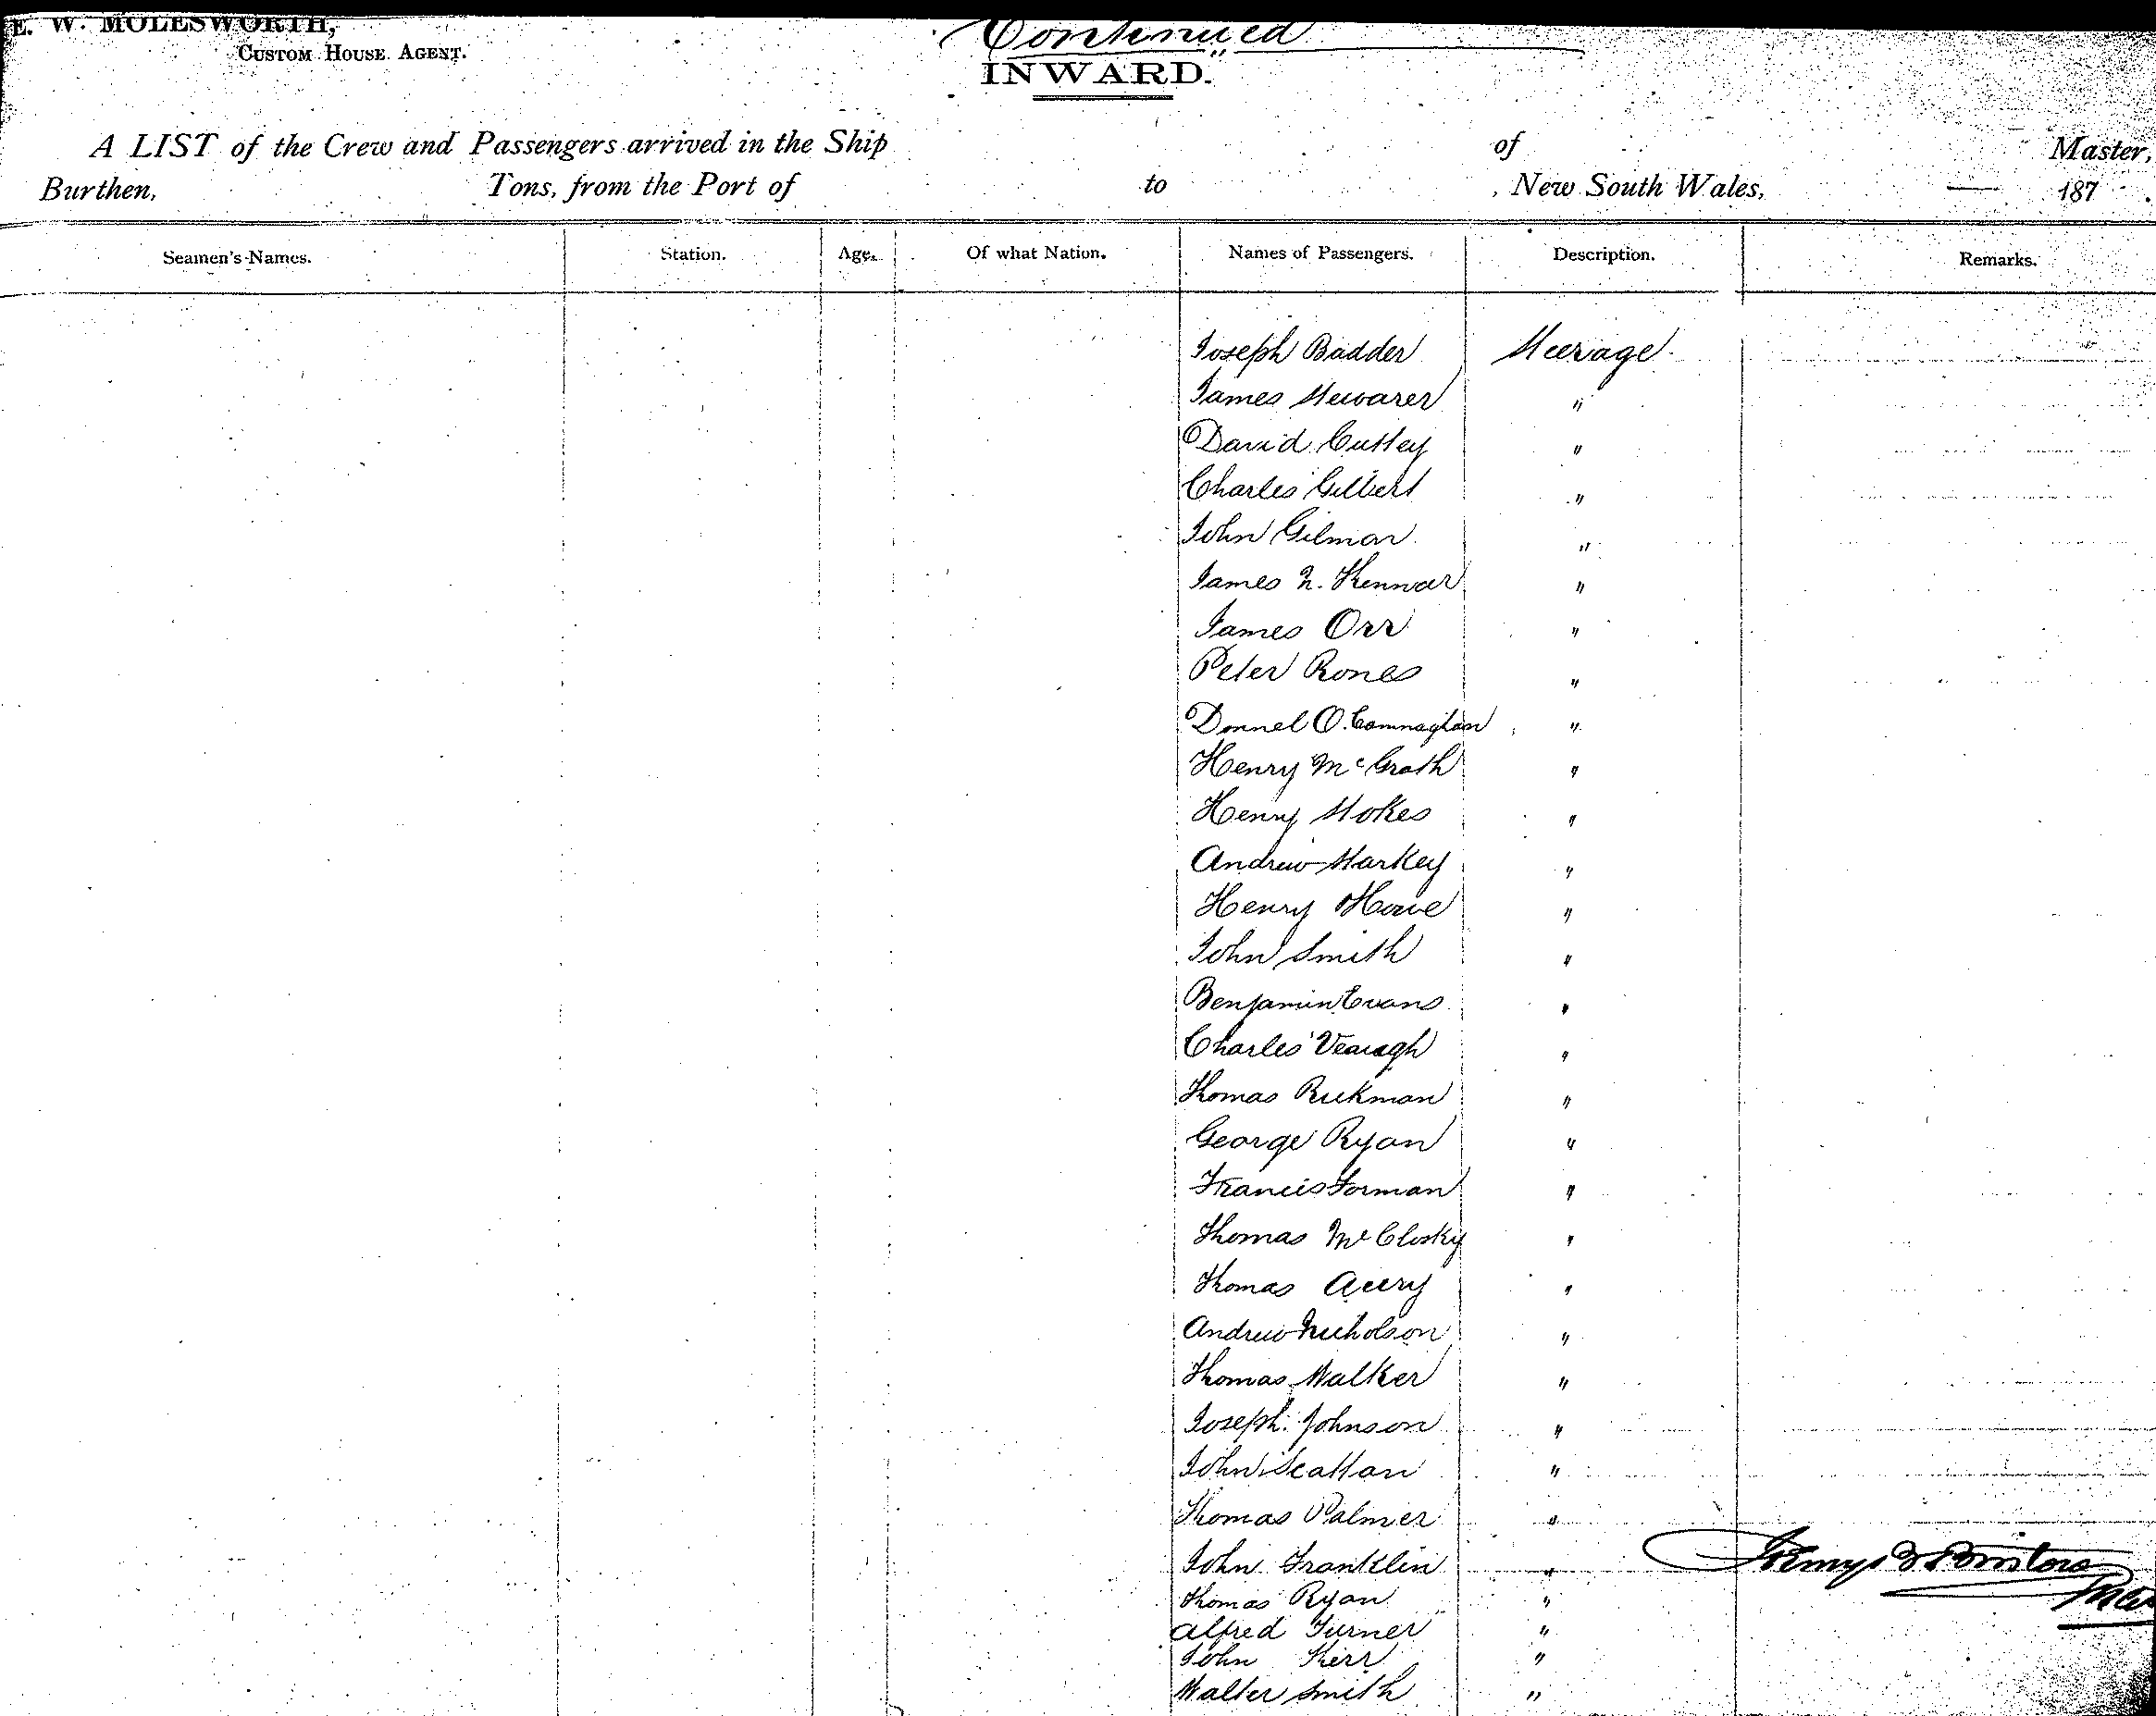 E. W. MOLESWORTH,
CUSTOM HOUSE AGENT.
Continued
INWARD.
A LIST of the Crew and Passengers arrived in the Ship of Master,
Burthen, Tons, from the Port of to , New South Wales, 187 .
Seamen's Names. Station. Age. Of what Nation. Names of Passengers. Description. Remarks.
Joseph Badder Steerage.
James "
David Cuttey "
Charles Gilbert "
John Gilmor "
James "
James Orr "
Peter Rones "
Donnel O. "
Henry McGrath "
Henry Stokes "
Andrew Starkey "
Henry Howe "
John Smith "
Benjamin Evans "
Charles "
Thomas Rickman "
George Ryan "
Francis Forman "
Thomas McClosky "
Thomas Avery "
Andrew Nicholson "
Thomas Walker "
Joseph Johnson "
John Scattan "
Thomas Palmer "
John Franklin "
Thomas Ryan "
Alfred Turner "
John Kerr "
Walter Smith "